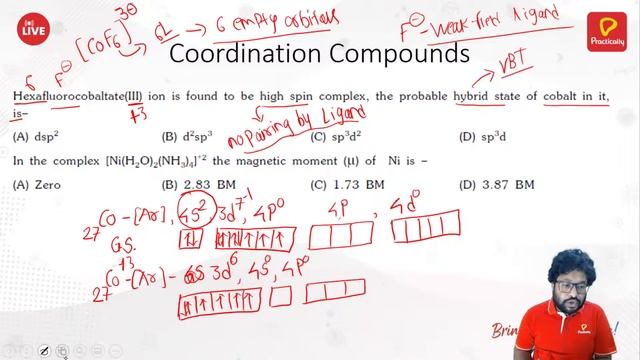 LIVE
[CoF6]3⊖ → 6L → 6 empty orbitals
F⊖ - Weak field ligand
Practically
Coordination Compounds
6 F⊖
VBT
Hexafluorocobaltate(III) ion is found to be high spin complex, the probable hybrid state of cobalt in it,
is–
+3
no pairing by Ligand
(A) dsp² (B) d²sp³ (C) sp³d² (D) sp³d
In the complex [Ni(H₂O)₂(NH₃)₄]⁺² the magnetic moment (μ) of Ni is –
(A) Zero (B) 2.83 BM (C) 1.73 BM (D) 3.87 BM
27Co - [Ar], 4S², 3d⁷⁻¹, 4P⁰ 4P, 4d⁰
G.S.
27Co+3 - [Ar] - 3d⁶, 4S⁰, 4P⁰
Practically
Brin